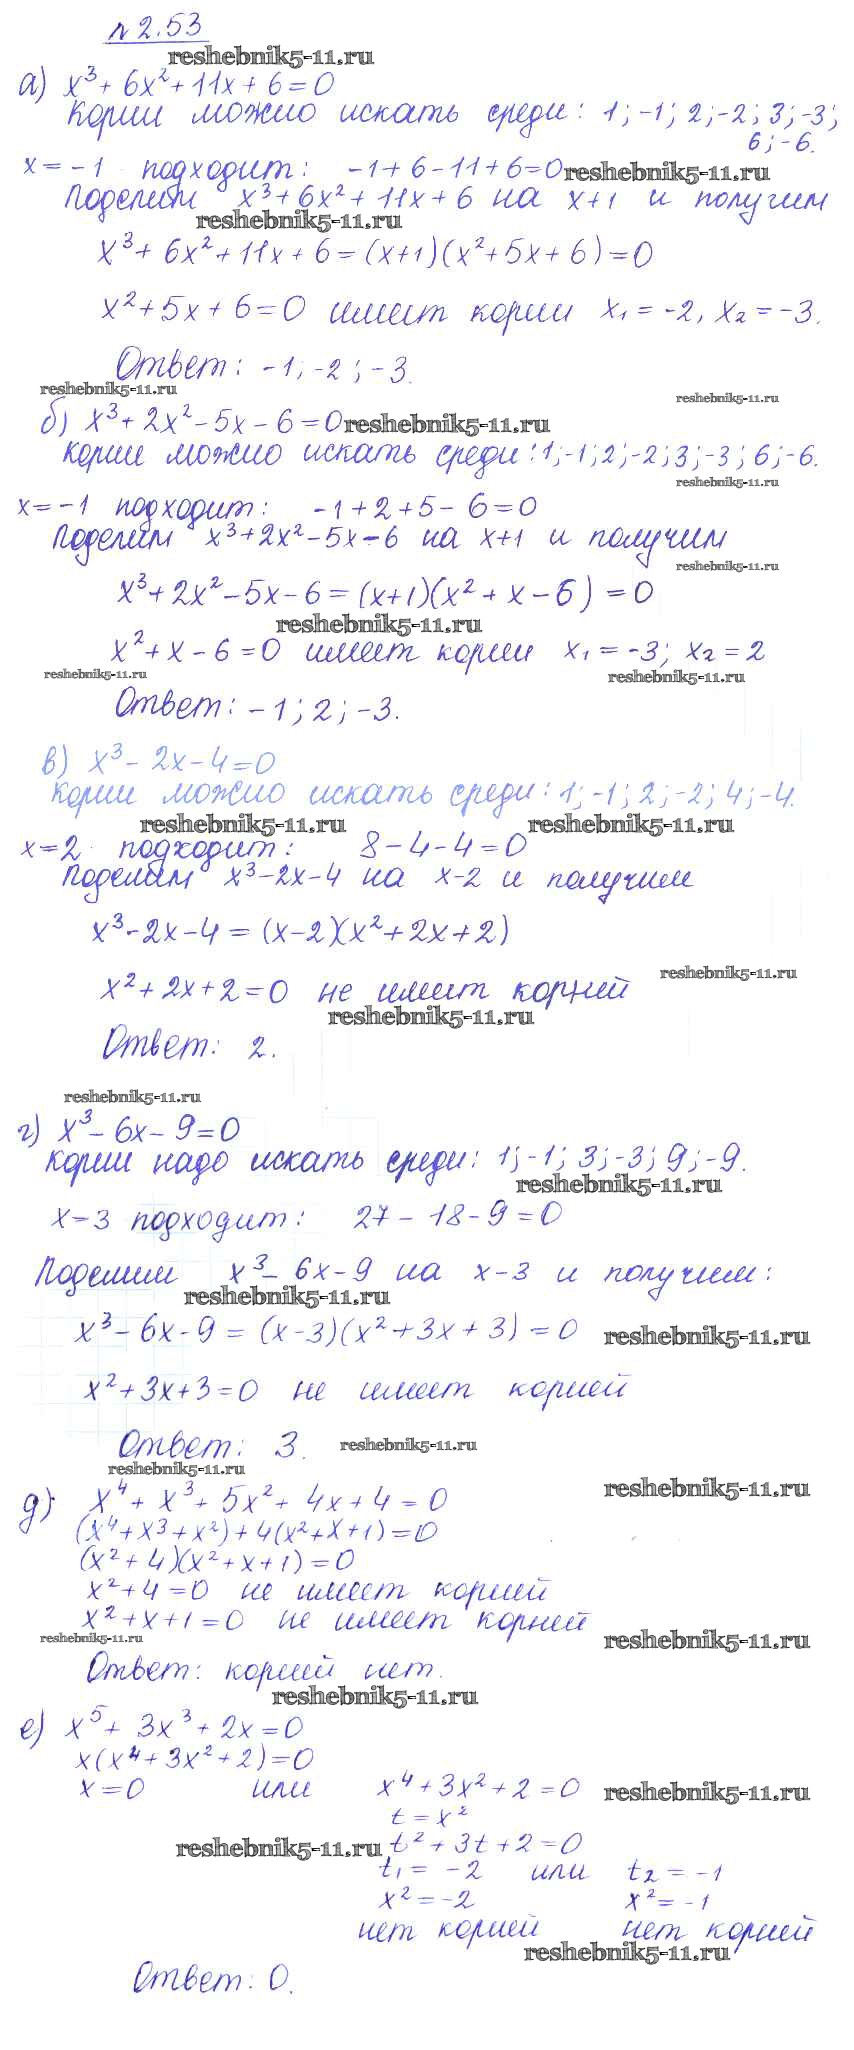 № 2.53
reshebnik5-11.ru
а) x³ + 6x² + 11x + 6 = 0
Корни можно искать среди: 1; -1; 2; -2; 3; -3;
6; -6.
x = -1 подходит: -1 + 6 - 11 + 6 = 0 reshebnik5-11.ru
Поделим x³ + 6x² + 11x + 6 на x+1 и получим
reshebnik5-11.ru
x³ + 6x² + 11x + 6 = (x+1)(x² + 5x + 6) = 0
x² + 5x + 6 = 0 имеет корни x₁ = -2, x₂ = -3.
Ответ: -1; -2; -3.
reshebnik5-11.ru
reshebnik5-11.ru
б) x³ + 2x² - 5x - 6 = 0 reshebnik5-11.ru
Корни можно искать среди: 1; -1; 2; -2; 3; -3; 6; -6.
reshebnik5-11.ru
x = -1 подходит: -1 + 2 + 5 - 6 = 0
Поделим x³ + 2x² - 5x - 6 на x+1 и получим
reshebnik5-11.ru
x³ + 2x² - 5x - 6 = (x+1)(x² + x - 6) = 0
reshebnik5-11.ru
x² + x - 6 = 0 имеет корни x₁ = -3; x₂ = 2
reshebnik5-11.ru
reshebnik5-11.ru
Ответ: -1; 2; -3.
в) x³ - 2x - 4 = 0
Корни можно искать среди: 1; -1; 2; -2; 4; -4.
reshebnik5-11.ru reshebnik5-11.ru
x = 2 подходит: 8 - 4 - 4 = 0
Поделим x³ - 2x - 4 на x-2 и получим
x³ - 2x - 4 = (x-2)(x² + 2x + 2)
reshebnik5-11.ru
x² + 2x + 2 = 0 не имеет корней
reshebnik5-11.ru
Ответ: 2.
reshebnik5-11.ru
г) x³ - 6x - 9 = 0
Корни надо искать среди: 1; -1; 3; -3; 9; -9.
reshebnik5-11.ru
x = 3 подходит: 27 - 18 - 9 = 0
Поделим x³ - 6x - 9 на x - 3 и получим:
reshebnik5-11.ru
x³ - 6x - 9 = (x-3)(x² + 3x + 3) = 0 reshebnik5-11.ru
x² + 3x + 3 = 0 не имеет корней
Ответ: 3. reshebnik5-11.ru
reshebnik5-11.ru
reshebnik5-11.ru
д) x⁴ + x³ + 5x² + 4x + 4 = 0
(x⁴ + x³ + x²) + 4(x² + x + 1) = 0
(x² + 4)(x² + x + 1) = 0
x² + 4 = 0 не имеет корней
x² + x + 1 = 0 не имеет корней
reshebnik5-11.ru reshebnik5-11.ru
Ответ: корней нет.
reshebnik5-11.ru
е) x⁵ + 3x³ + 2x = 0
x(x⁴ + 3x² + 2) = 0
x = 0 или x⁴ + 3x² + 2 = 0 reshebnik5-11.ru
t = x²
reshebnik5-11.ru t² + 3t + 2 = 0
t₁ = -2 или t₂ = -1
x² = -2 x² = -1
нет корней нет корней
reshebnik5-11.ru
Ответ: 0.